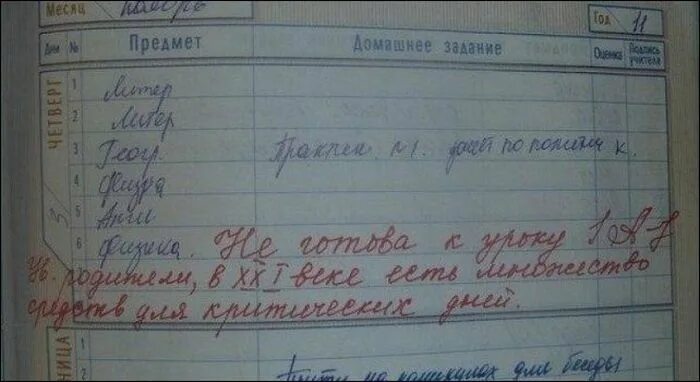 Месяц ноябрь Год 11
Дни № Предмет Домашнее задание Оценка Подпись учителя
ЧЕТВЕРГ 3
1 Литер
2 Литер
3 Геогр. Практич. №1. по политич к.
4 Физра
5 Англ
6 Физика. Не готова к уроку !
родители, в XXI веке есть множество
средств для критических дней.
НИЦА 1
2 на каникулах для беседы